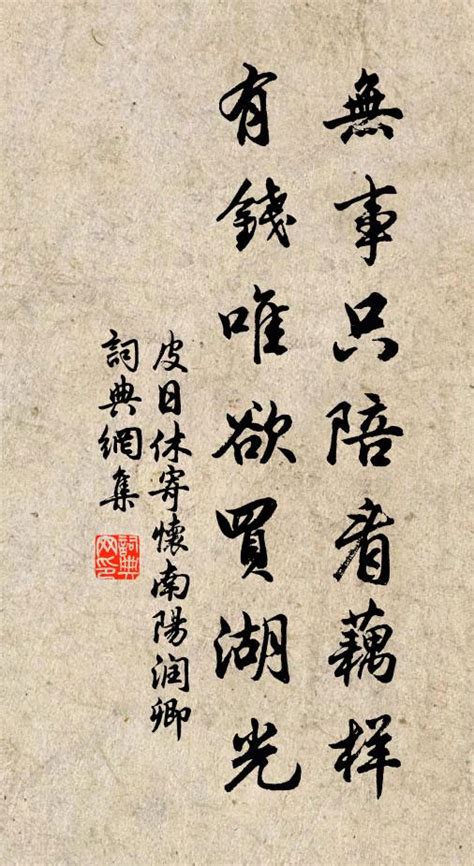 無事只陪看藕样
有錢唯欲買湖光
皮日休寄懷南陽润卿
詞典網集
詞典网印